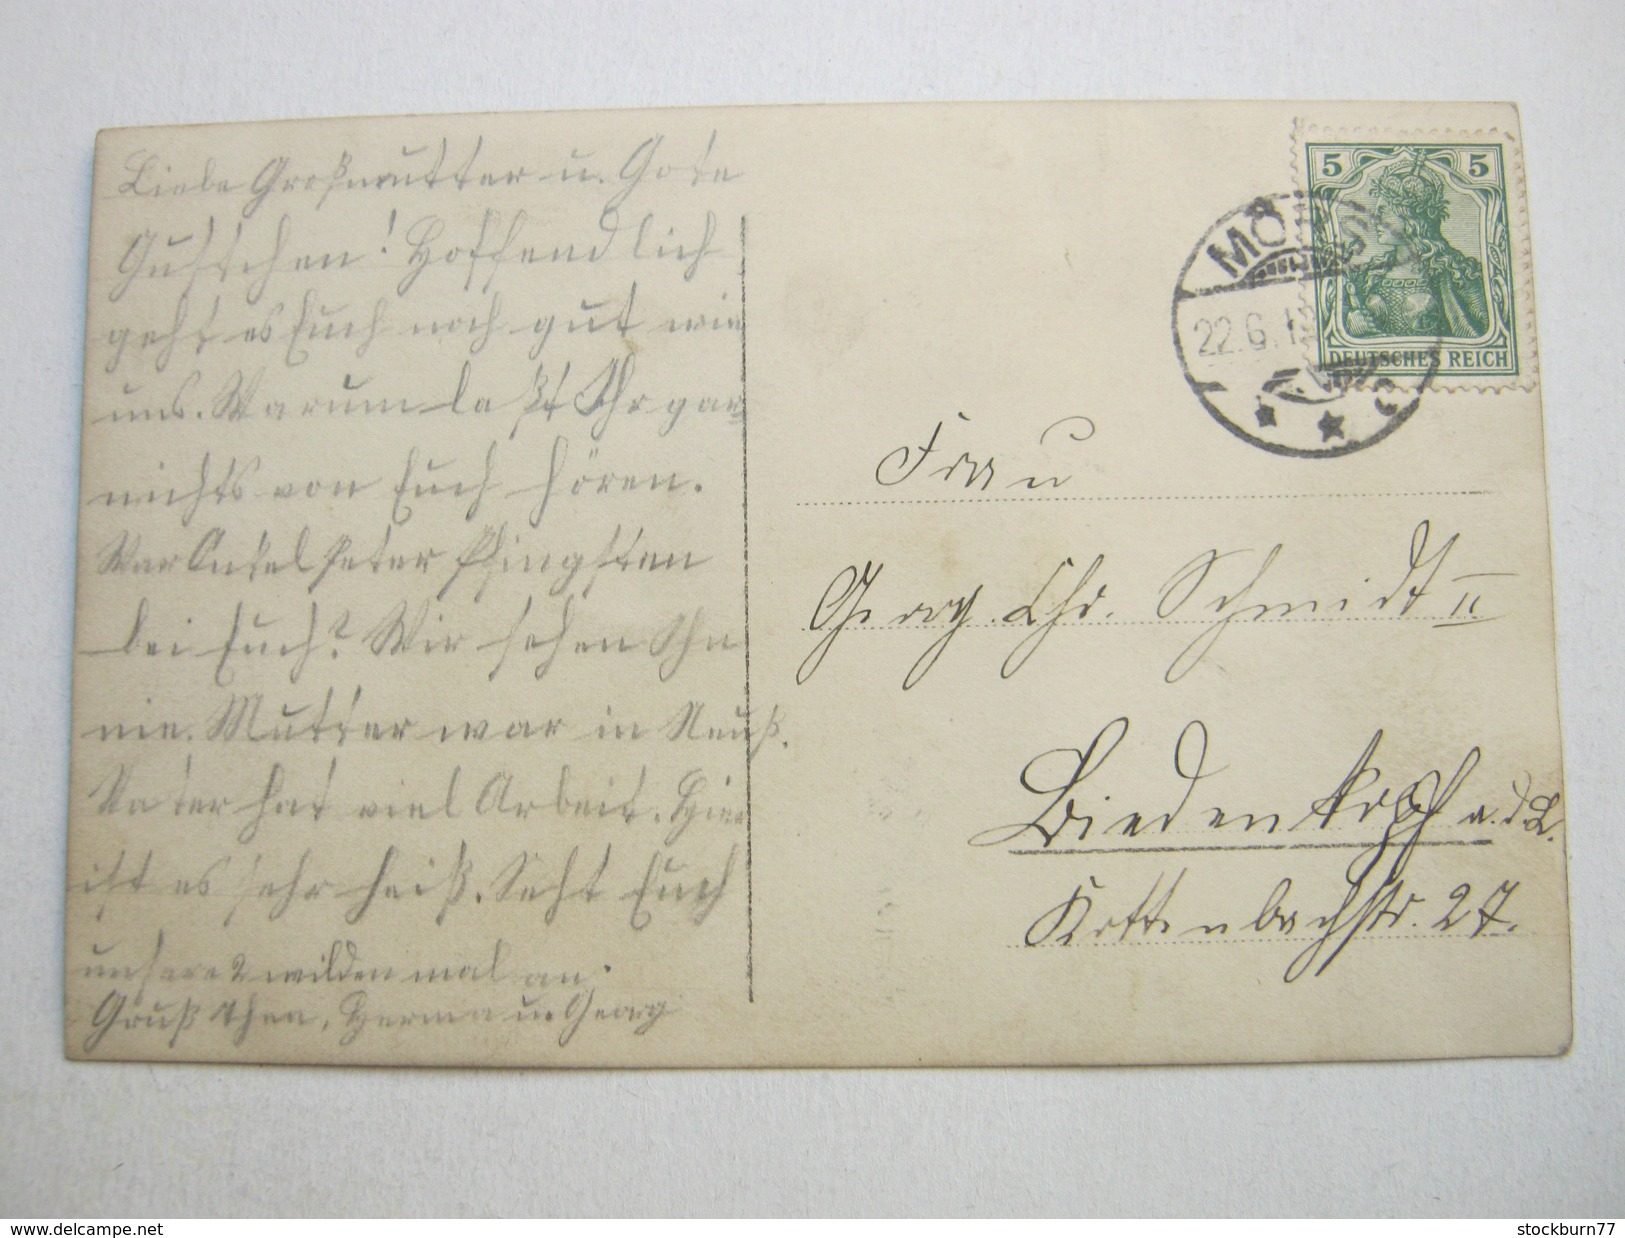 Liebe Großmutter u. Gote
Gustchen! Hoffendlich
geht es Euch noch gut wie
uns. Warum laßt Ihr gar
nichts von Euch hören.
War Onkel Peter Pfingsten
bei Euch? Wir sehen Ihn
nie. Mutter war in Neuß.
Vater hat viel Arbeit. Hier
ist es sehr heiß. Seht Euch
unsere 2 wilden mal an.
Gruß Herma u. Georg
5 5
DEUTSCHES REICH
22.6.1
Frau
Georg Chr. Schmidt II
Biedenkopf a.d.L.
Kottenbachstr. 27.
www.delcampe.net
stockburn77